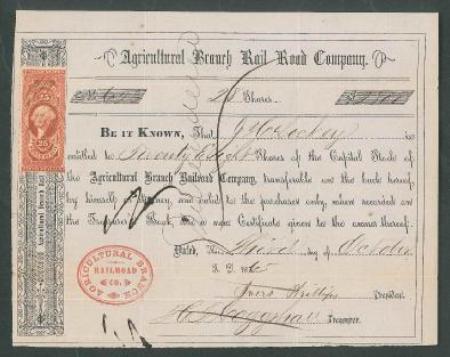 Agricultural Branch Rail Road Company.
28 Shares.
BE IT KNOWN, That
entitled to Twenty Eight Shares of the Capital Stock of
the Agricultural Branch Railroad Company, transferable on the back hereof,
by himself or Attorney, and valid to the purchaser only when recorded on
the Treasurer's Book, and a new Certificate given to the owner thereof.
Dated, this Third day of October
A. D. 186
Phillips President.
Treasurer.
AGRICULTURAL BRANCH
RAILROAD
CO.
Agricultural Branch Rail
25 25